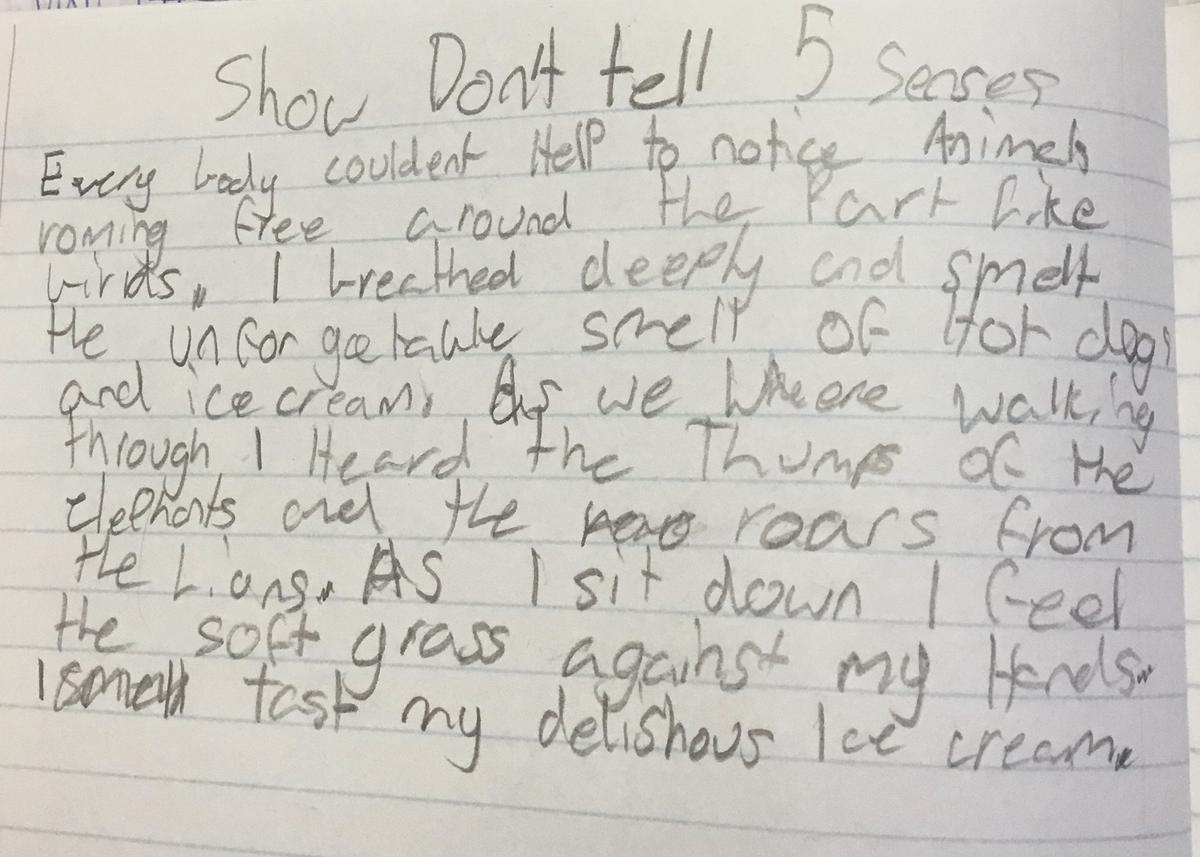 Show Don't tell 5 Senses
Every body couldent Help to notice Animals
roming free around the Park like
birds. I breathed deeply and smelt
the unforgetable smell of Hot dogs
and ice cream. As we Wheere walking
through I Heard the Thumps of the
Elephants and the roars from
the Lions. As I sit down I feel
the soft grass against my Hands.
I tast my delishous Ice cream.